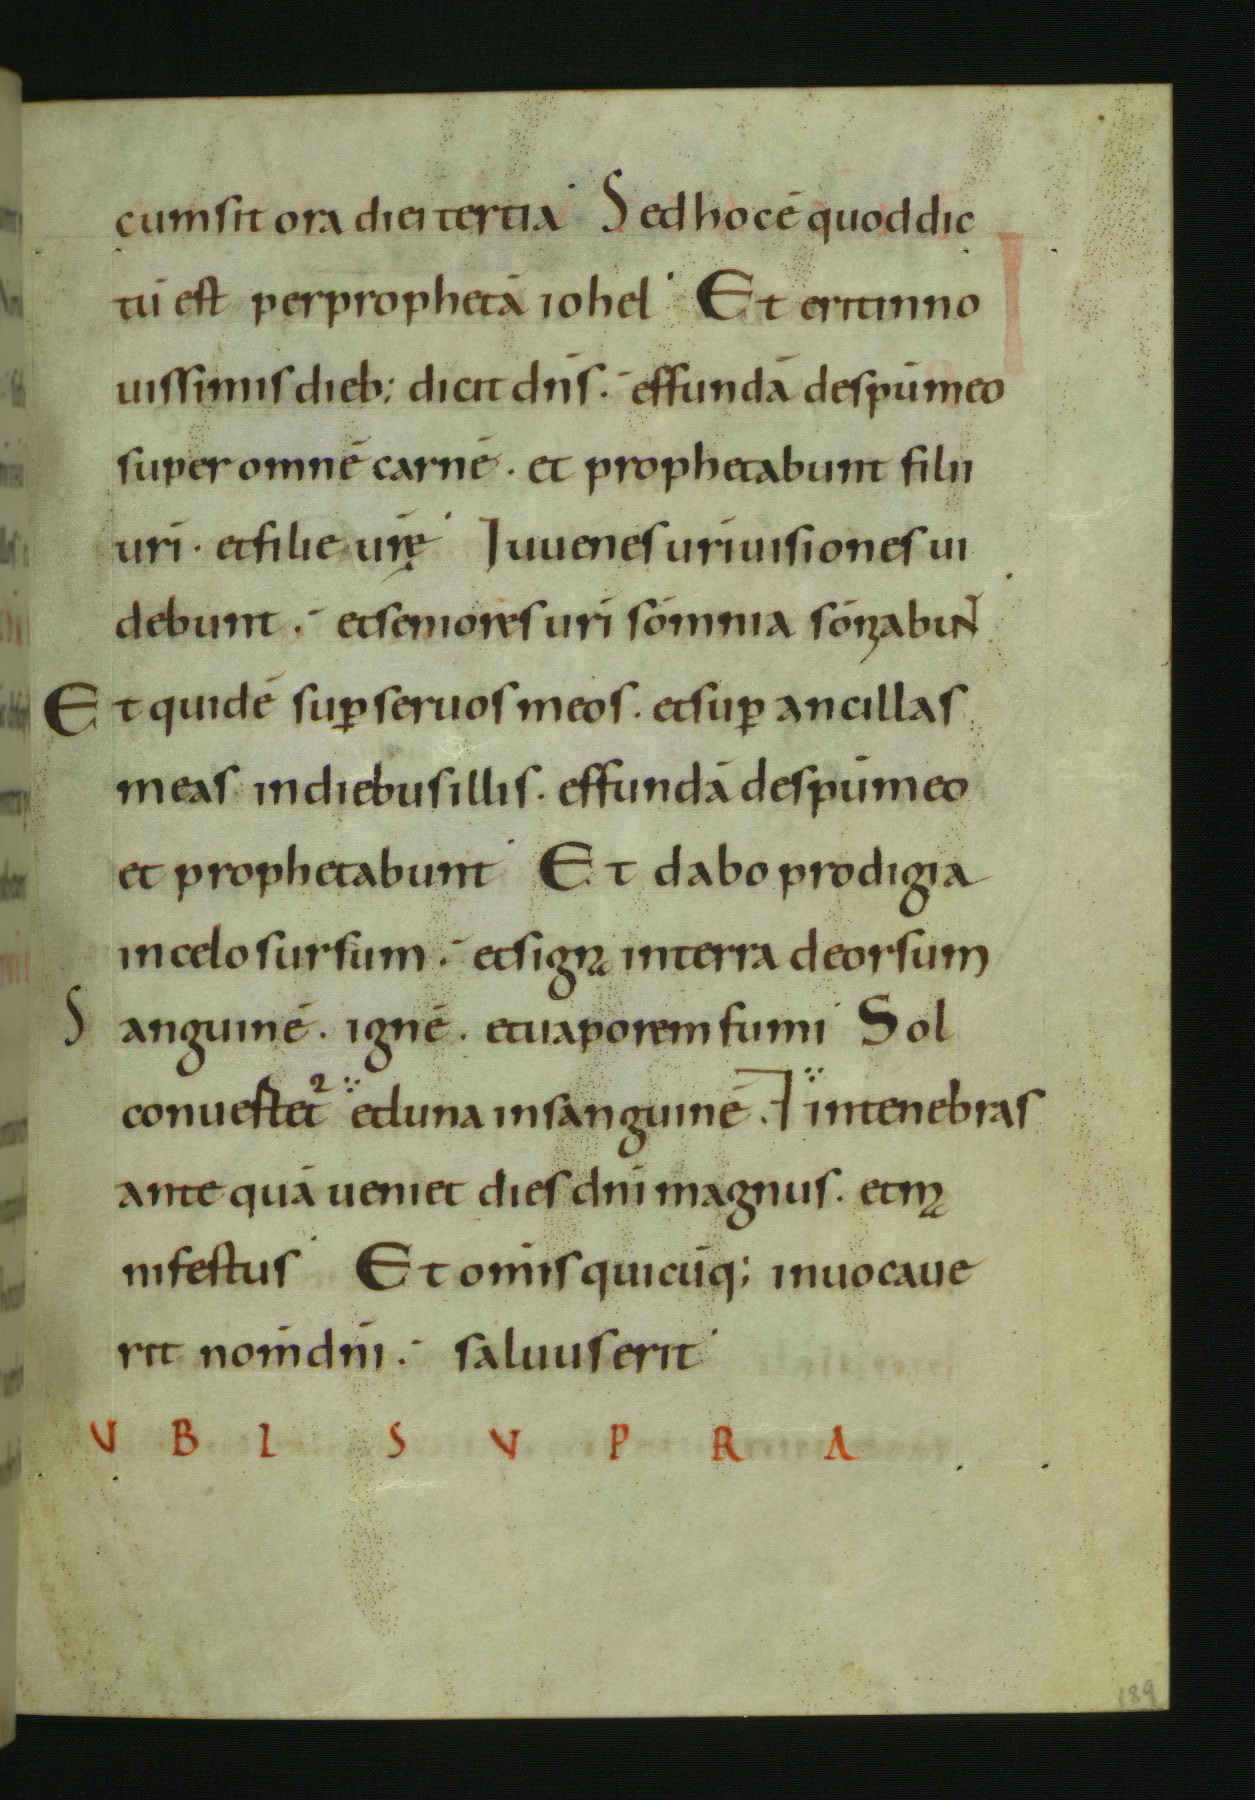 cum sit ora diei tertia Sed hoc ē quod dic
tū est per prophetā iohel Et erit in no
uissimis dieb; dicit dn̄s. effundā de sp̄u meo
super omnē carnē. et prophetabunt filii
ur̄i. et filie ur̄ę Iuuenes ur̄i uisiones ui
debunt. et seniores ur̄i sōmnia sōn̄abuN̄
Et quidē suꝑ seruos meos. et suꝑ ancillas
meas in diebus illis. effundā de sp̄u meo
et prophetabunt Et dabo prodigia
in celo sursum. et signa in terra deorsum
Sanguinē. ignē. et uaporem fumi Sol
conuestet² et luna in sanguinē. in tenebras
ante quā ueniet dies dn̄i magnus. et ma
nifestus Et om̄is quicūq; inuocaue
rit nom̄ dn̄i. saluus erit
V B I S V P R A
189